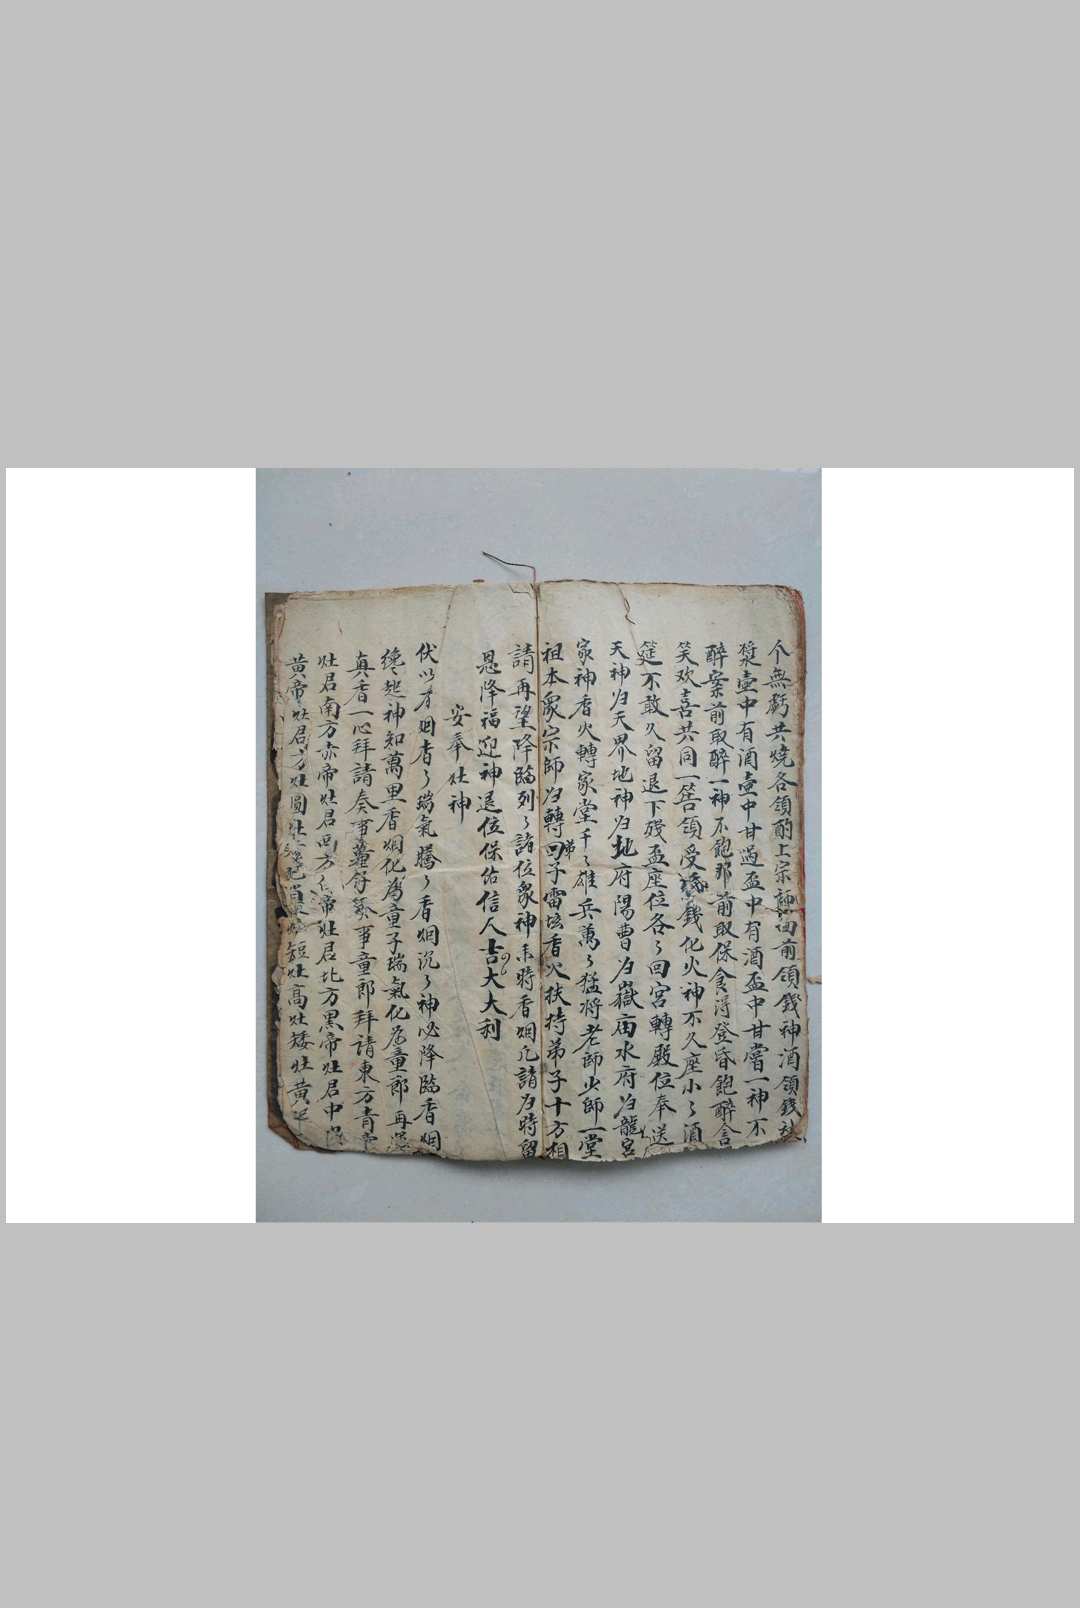 个無虧共燒各領酌上宗師面前領錢神酒領錢
漿壺中有酒壺中甘過盃中有酒盃中甘嘗一神不
醉案前取醉一神不飽那前取保食淂登昏飽醉含
笑欢喜共同一筶領受錢化火神不久座小〻酒
筵不敢久留退下殘盃座位各〻回宮轉殿位奉送
天神归天界地神归地府陽曹归嶽庙水府归龍宮
家神香火轉家堂千〻雄兵萬〻猛将老師少師一堂
祖本眾宗師归轉弟子雷坛香火扶持弟子十方相
請再望降臨列〻諸位眾神来時香烟凡請归時留
恩降福迎神退位保佑信人吉大大利
安奉灶神
伏以才烟香〻瑞氣騰〻香烟沉〻神必降臨香烟
纔起神知萬里香烟化為童子瑞氣化为童郎再
真香一心拜請奏事童子奏事童郎拜請東方青帝
灶君南方赤帝灶君西方帝灶君北方黑帝灶君中
黄帝灶君方灶圓灶短灶高灶矮灶黄